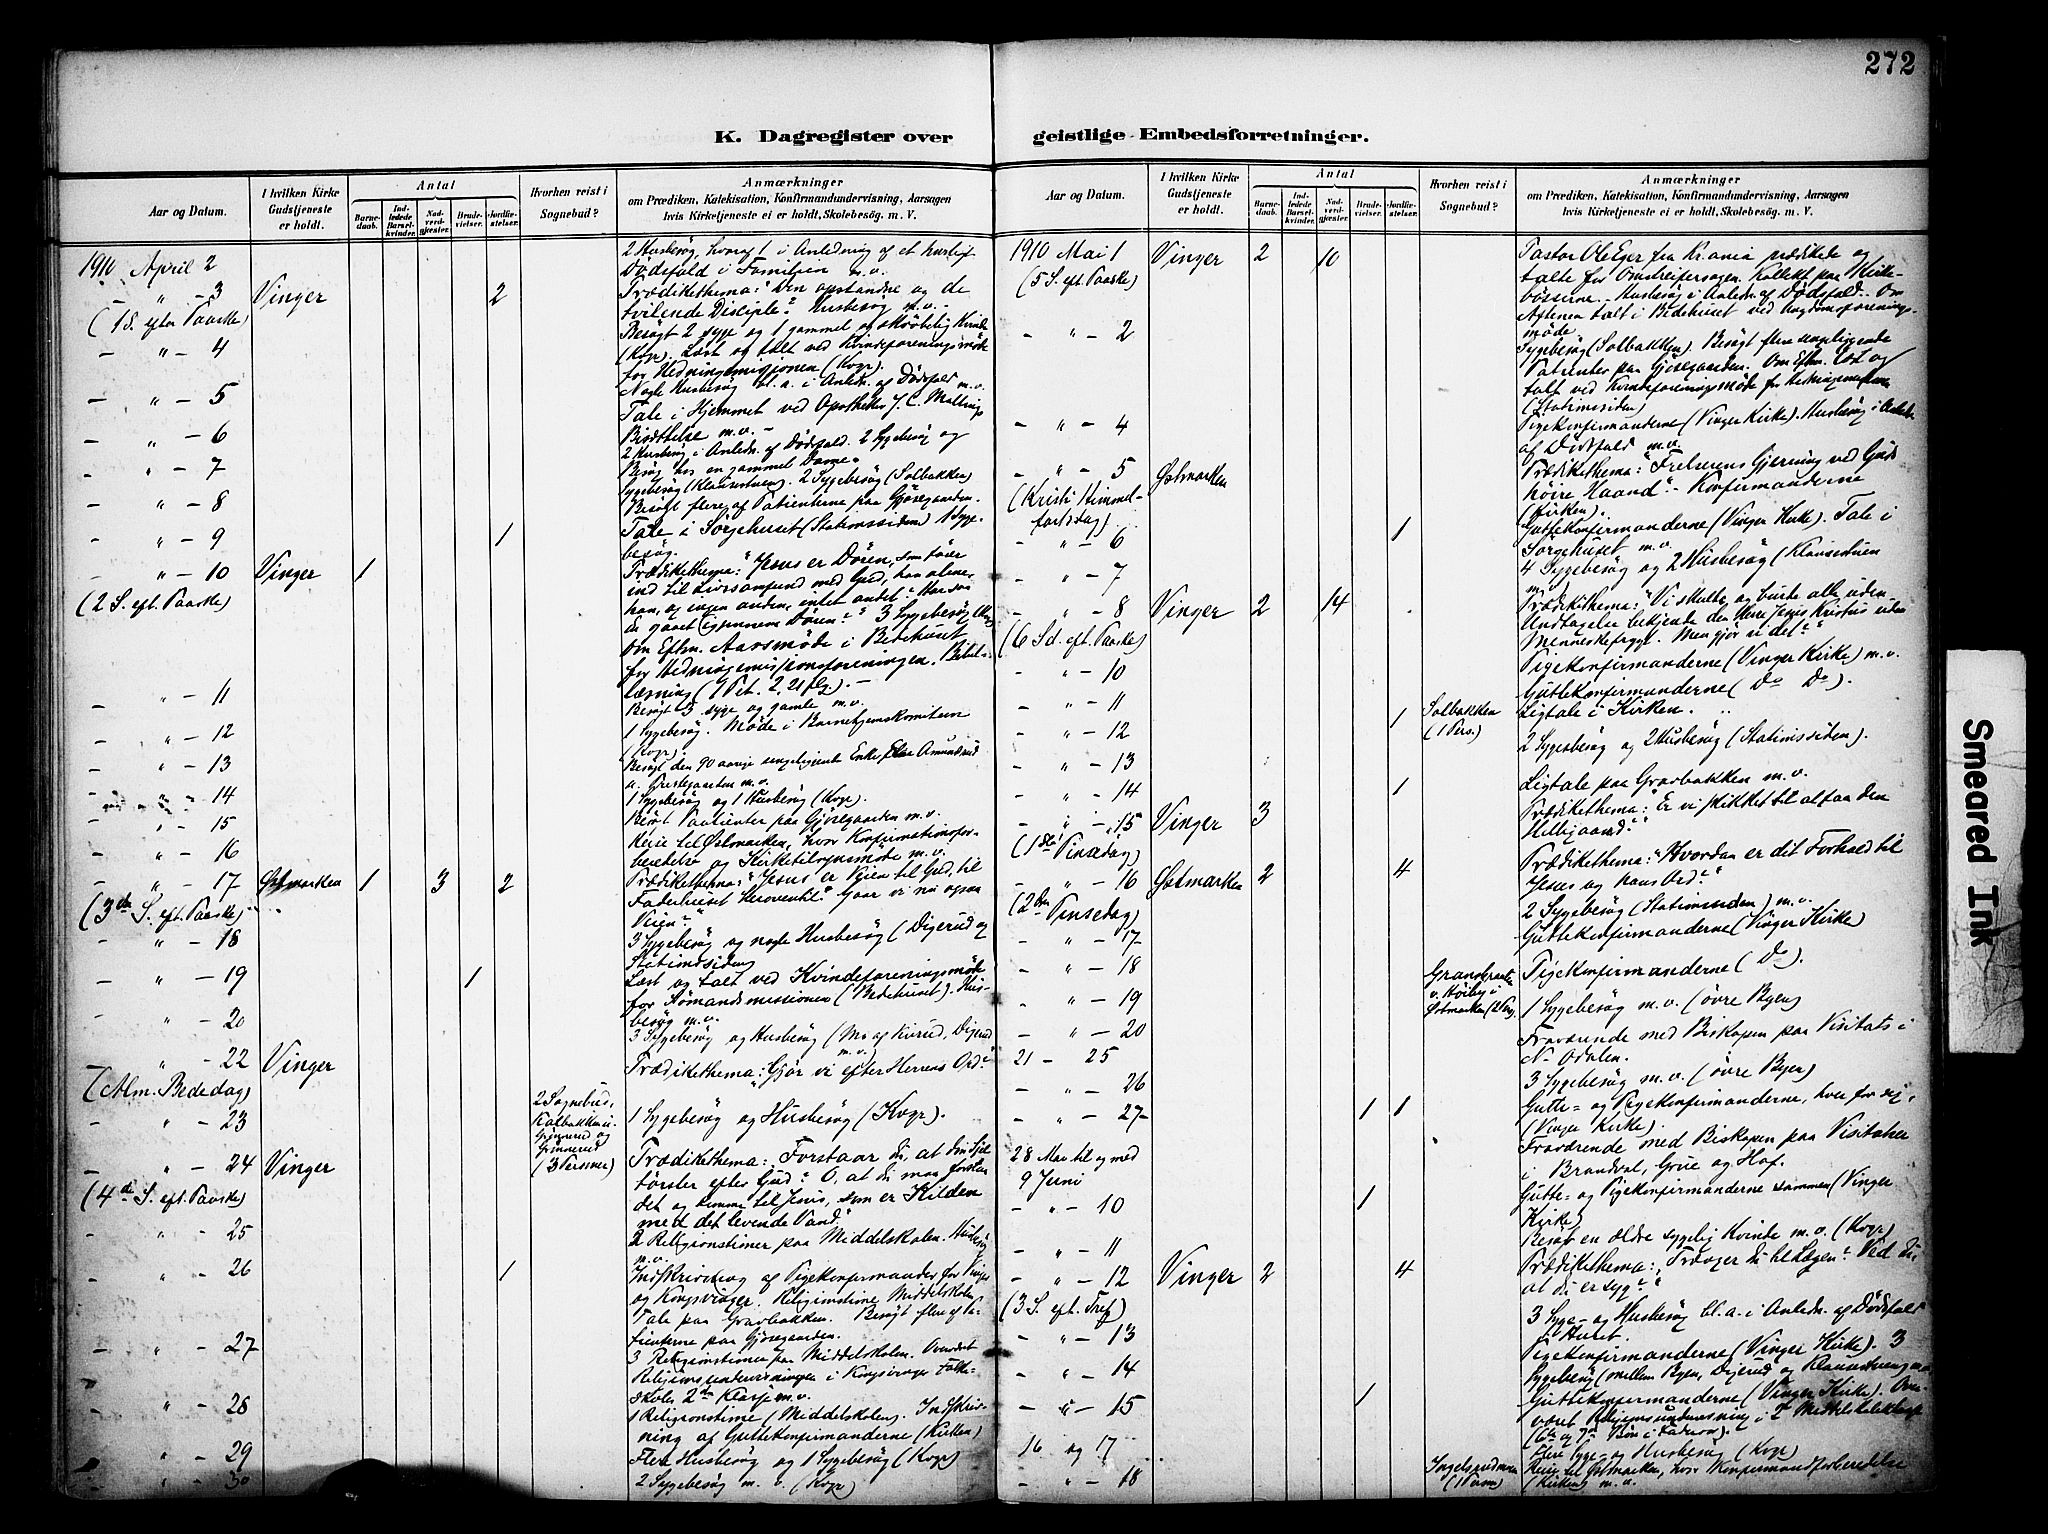 272
K. Dagregister over geistlige Embedsforretninger.
Aar og Datum.
I hvilken Kirke Gudstjeneste er holdt.
Antal
Barnedaab.
Indledede Barselkvinder.
Nadverdgjester.
Brudevielser.
Jordfæstelser.
Hvorhen reist i Sognebud?
Anmærkninger
om Prædiken, Katekisation, Konfirmandundervisning, Aarsagen
hvis Kirketjeneste ei er holdt, Skolebesøg. m. V.
1910 April 2
2 Husbesøg, hvoraf 1 i Anledning af et
Dødsfald i Familien m.v.
" - 3 Vinger 2
(1 S. efter Paaske)
Prædikethema: "Den opstandne og de
tvilende Disciple". Husbesøg m.v. -
Besøgt 2 syge og 1 gammel og skrøbelig Kvinde
- " - 4
(Kvgr). Læst og talt ved Kvindeforeningsmøde
for Hedningemissionen (Kvgr).
- " - 5
Nogle Husbesøg bl.a. i Anledn. af Dødsfald m.v.
Tale i Hjemmet ved Apotheker J. C.
- " - 6
Bisættelse m.v. -
2 Husbesøg i Anledn. af Dødsfald. 2 Sygebesøg og
- " - 7
Besøg hos en gammel Dame.
Sygebesøg (Klausestuen). 2 Sygebesøg (Solbakken)
- " - 8
Besøgt flere af Patienterne paa Gjøsegaarden.
- " - 9 1
Tale i Sørgehuset (Stationssiden) 1 Syge-
besøg.
- " - 10 Vinger 1
(2 S. eft. Paaske)
Prædikethema: "Jesus er Døren, som fører
ind til Livssamfund med Gud, han alene,
han, og ingen anden, intet andet. Har
du gaaet igjennem Døren?" 3 Sygebesøg
Om Eftm. Aarsmøde i Bedehuset
for Hedningemissionsforeningen. Bibel-
læsning (1 Pet. 2, 21 flg.). -
- " - 11
Besøgt 3 syge og gamle m.v.
- " - 12
1 Sygebesøg. Møde i Barnehjemskomiteen
(Kvgr).
- " - 13
Besøgt den 90 aarige sengeliggende Enke
u. Prestegaarden m.v.
- " - 14
1 Sygebesøg og 1 Husbesøg (Kvgr).
- " - 15
Besøgt Patienter paa Gjøsegaarden m.v.
- " - 16
Reise til Østmarken, hvor Konfirmationsfor-
beredelse og Kirketilsynsmøde m.v.
- " - 17 Østmarken 1 3 2
(3die S. eft. Paaske)
Prædikethema: "Jesus er Veien til Gud, til
Faderhuset heroventil. Gaar vi nu ogsaa
Veien?"
- " - 18
3 Sygebesøg og nogle Husbesøg (Digerud og
Stationssiden)
- " - 19 1
Læst og talt ved Kvindeforeningsmøde
for Sømandsmissionen (Bedehuset). Hus-
besøg m.v.
- " - 20
3 Sygebesøg og Husbesøg
m.v.
" - 22 Vinger
(Alm. Bededag)
Prædikethema: "Gjør vi efter Herrens Ord?"
- " - 23
2 Sognebud,
(3 Personer)
1 Sygebesøg og Husbesøg (Kvgr).
- " - 24 Vinger
(4de S. eft. Paaske)
Prædikethema: Forstaar du, at din Sjæl
tørster efter Gud? O, at du maa forstaa
det og komme til Jesus, som er Kilden
med det levende Vand."
- " - 25
2 Religionstimer paa Middelskolen. Husbesøg
m.v.
- " - 26 1
Indskrivning af Pigekonfirmander for Vinger
og Kongsvinger. Religionstime Middelskolen
Tale paa Gravbakken. Besøgt flere af Pa-
tienterne paa Gjøsegaarden.
- " - 27
3 Religionstimer paa Middelskolen. Overværet
Religionsundervisningen i Kongsvinger Folke-
skoles 2den Klasse m.v.
- " - 28
1 Religionstime (Middelskolen). Indskriv-
ning af Guttekonfirmanderne (Kirken)
- " - 29
Flere Husbesøg og 1 Sygebesøg (Kvgr)
- " - 30
2 Sygebesøg m.v. (Kvgr)
Aar og Datum.
I hvilken Kirke Gudstjeneste er holdt.
Antal
Barnedaab.
Indledede Barselkvinder.
Nadverdgjester.
Brudevielser.
Jordfæstelser.
Hvorhen reist i Sognebud?
Anmærkninger
om Prædiken, Katekisation, Konfirmandundervisning, Aarsagen
hvis Kirketjeneste ei er holdt, Skolebesøg. m. V.
1910 Mai 1 Vinger 2 10
(5 S. eft. Paaske)
Pastor Ole Eger fra Kr.ania prædikede og
talte for Omstreifersagen. Kollekt paa Kirke-
bøsserne. Husbesøg i Anledn. af Dødsfald. Om
Aftenen talt i Bedehuset ved Ungdomsforenings-
møde.
- " - 2
Sygebesøg (Solbakken). Besøgt flere sengeliggende
Patienter paa Gjøsegaarden. Om Eftm. læst og
talt ved Kvindeforeningsmøde for Hedningemissionen
(Stationssiden)
- " - 4
Pigekonfirmanderne (Vinger Kirke). Husbesøg i Anledn.
af Dødsfald m.v.
- " - 5 Østmarken
(Kristi Himmel-
fartsdag)
Prædikethema: "Frelserens Gjerning ved Guds
høire Haand". - Konfirmanderne
(Kirken).
- " - 6 1
Guttekonfirmanderne (Vinger Kirke). Tale i
Sørgehuset m.v.
- " - 7
4 Sygebesøg og 2 Husbesøg (Klausestuen
m.v.)
- " - 8 Vinger 2 14
(6 Sd. eft. Paaske)
Prædikethema: "Vi skulde og burde alle uden
Undtagelse bekjende den Herre Jesus Kristus uden
Menneskefrygt. Men gjør vi det?"
- " - 10
Pigekonfirmanderne (Vinger Kirke) m.v.
- " - 11
Guttekonfirmanderne (Do Do).
- " - 12 1
Solbakken
(1 Pers.)
Ligtale i Kirken.
- " - 13
2 Sygebesøg og 2 Husbesøg (Stationssiden).
- " - 14 1
Ligtale paa Gravbakken m.v.
- " - 15 Vinger 3
(1ste Pinsedag)
Prædikethema: "Er vi skikket til at faa den
Helligaand?"
- " - 16 Østmarken 2 4
(2den Pinsedag)
Prædikethema: "Hvordan er dit Forhold til
Jesus og hans Ord?"
- " - 17
2 Sygebesøg (Stationssiden) m.v.
- " - 18
Guttekonfirmanderne (Vinger Kirke)
Østmarken (2 Pers.)
- " - 19
Pigekonfirmanderne (Do).
- " - 20
1 Sygebesøg m.v. (øvre Byen)
21 - 25
Fraværende med Biskopen paa Visitats i
N. Odalen.
- " - 26
3 Sygebesøg m.v. (øvre Byen)
- " - 27 - 1 1
Gutte- og Pigekonfirmanderne, hver for sig,
(Vinger Kirke).
28 Mai til og med
9 Juni
Fraværende med Biskopen paa Visitatser
i Brandval, Grue og Hof.
- " - 10 1
Gutte- og Pigekonfirmanderne sammen (Vinger
Kirke)
- " - 11
Besøgt en ældre sygelig Kvinde m.v. (Kvgr)
- " - 12 Vinger 2 4
(3 S. eft. Tref)
Prædikethema: "Trænger du til Lægen? Ved du
at du er syg?"
- " - 13
3 Syge- og Husbesøg bl.a. i Anledn. af Dødsfald
i Huset.
- " - 14
Pigekonfirmanderne (Vinger Kirke). 3
Sygebesøg (mellem Byen, Digerud og
- " - 15 1
Guttekonfirmanderne (Vinger Kirke). Over-
været Religionsundervisning i 2
(6te og 7de Bøn i Fadervor).
16 og 17
Flere Syge- og Husbesøg (Kvgr)
- " - 18
Reise til Østmarken, hvor Konfirmandforberedelse
(Kirken) m.v.
Smeared Ink